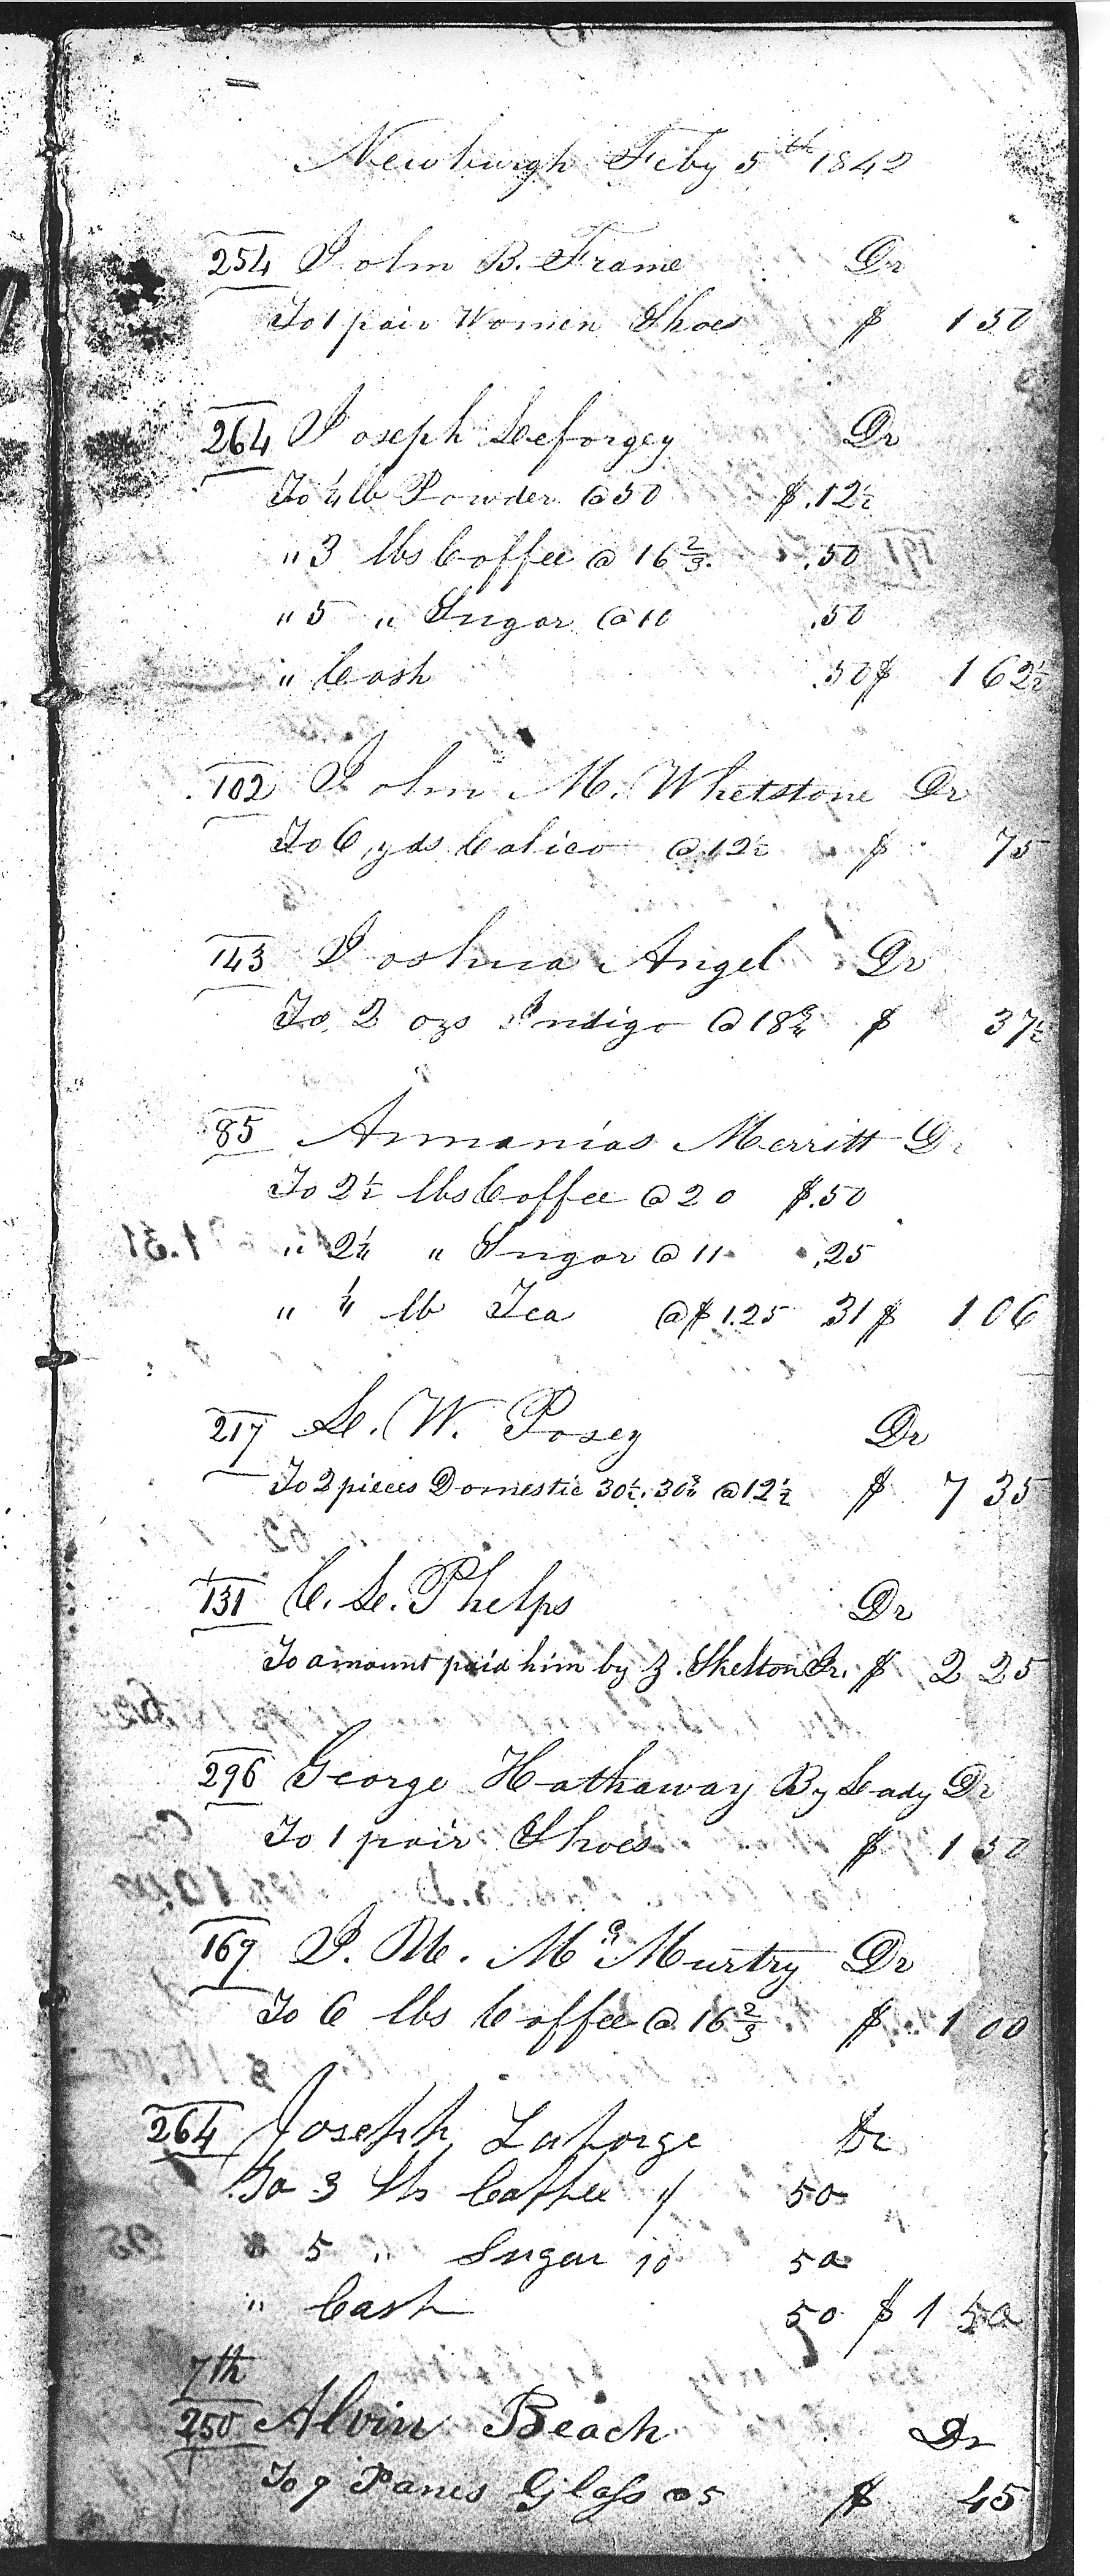 Newburgh Feby 5th 1842
254 John B. Frame Dr
To 1 pair Women Shoes $ 1 50
264 Joseph Leforgey Dr
To ¼ lb Powder @ 50 $.12½
" 3 lbs Coffee @ 16⅔ .50
" 5 " Sugar @ 10 .50
" Cash .50 $ 1 62½
102 John M. Whetstone Dr
To 6 yds Calico @ 12½ $ 75
143 Joshua Angel Dr
To 2 ozs Indigo @ 18¾ $ 37½
85 Annanias Merritt Dr
To 2½ lbs Coffee @ 20 $.50
" 2¼ " Sugar @ 11 .25
" ¼ lb Tea @ $1.25 31 $ 1 06
217 L. W. Posey Dr
To 2 pieces Domestic 30½. 30¾ @ 12½ $ 7 35
131 C. L. Phelps Dr
To amount paid him by Z. Skelton Jr. $ 2 25
296 George Hathaway By Lady Dr
To 1 pair Shoes $ 1 50
169 J. M. McMurtry Dr
To 6 lbs Coffee @ 16⅔ $ 1 00
264 Joseph Laforge Dr
To 3 lbs Coffee 50
" 5 " Sugar 10 50
" Cash 50 $ 1 50
7th
250 Alvin Beach Dr
To 9 Panes Glass @ 5 $ 45